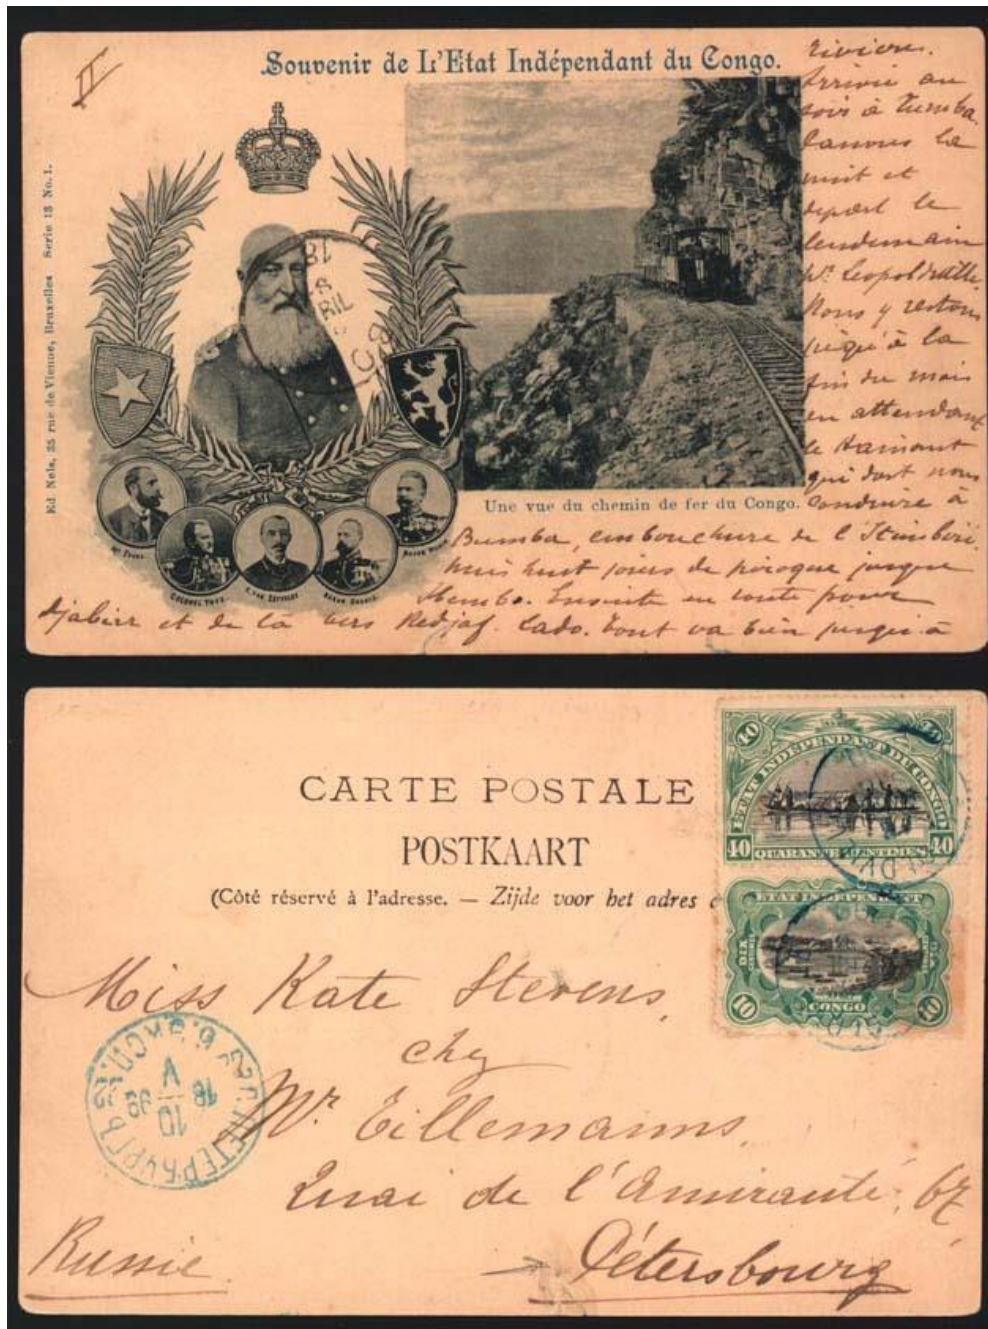 II
Souvenir de L'Etat Indépendant du Congo.
Ed Nels, 35 rue de Vienne, Bruxelles Serie 13 No. 1.
RIL
COLONEL THYS.
Une vue du chemin de fer du Congo.
rivière.
Arrivée au
soir à Tumba.
la
nuit et
départ le
lendemain
pr Leopoldville.
Nous y restons
jusqu'à la
fin du mois
en attendant
le
qui doit nous
conduire à
Bumba, embouchure de l'Itimbiri.
huit jours de pirogue jusque
Ensuite en route pour
Djabirr et de là vers Redjaf. Lado. Tout va bien jusqu'à
CARTE POSTALE
POSTKAART
(Côté réservé à l'adresse. — Zijde voor het adres
40 40
ETAT INDEPENDANT DU CONGO
40 QUARANTE CENTIMES 40
ETAT INDEPENDANT
DIX
10 CONGO 10
Miss Kate Stevens,
chez
Mr. Eillemanns,
Quai de l'Amirauté, 67
Pétersbourg
Russie.
С.ПЕТЕРБУРГЪ
18 10 V 99